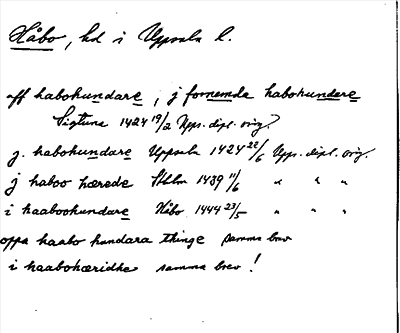 Håbo, hd i Uppsala l.
aff habohundare, j fornemda habohundare
Sigtuna 1424 19/2 Upps. dipl. orig.
j. habohundare Uppsala 1424 22/6 Upps. dipl. orig.
j haboo hærede Sthlm 1439 11/6 " " "
i haabohundare Håbo 1444 23/5 " " "
oppa haabo hundara thinge samma brev
i haabohæridhe samma brev!